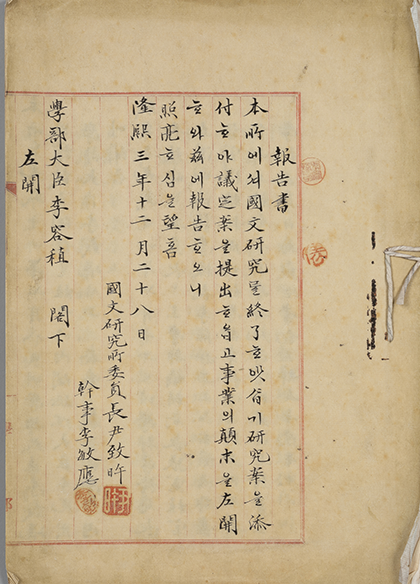 報告書
本所에셔國文研究를終了ᄒᆞ얏ᄉᆞᆸ기研究案을添
付ᄒᆞ야議定案을提出ᄒᆞᄋᆞᆸ고事業의顚末을左開
ᄒᆞ와玆에報告ᄒᆞ오니
照亮ᄒᆞ심을望홈
隆熙三年十二月二十八日
國文研究所委員長尹致旿
幹事李敏應
學部大臣李容稙 閣下
左開